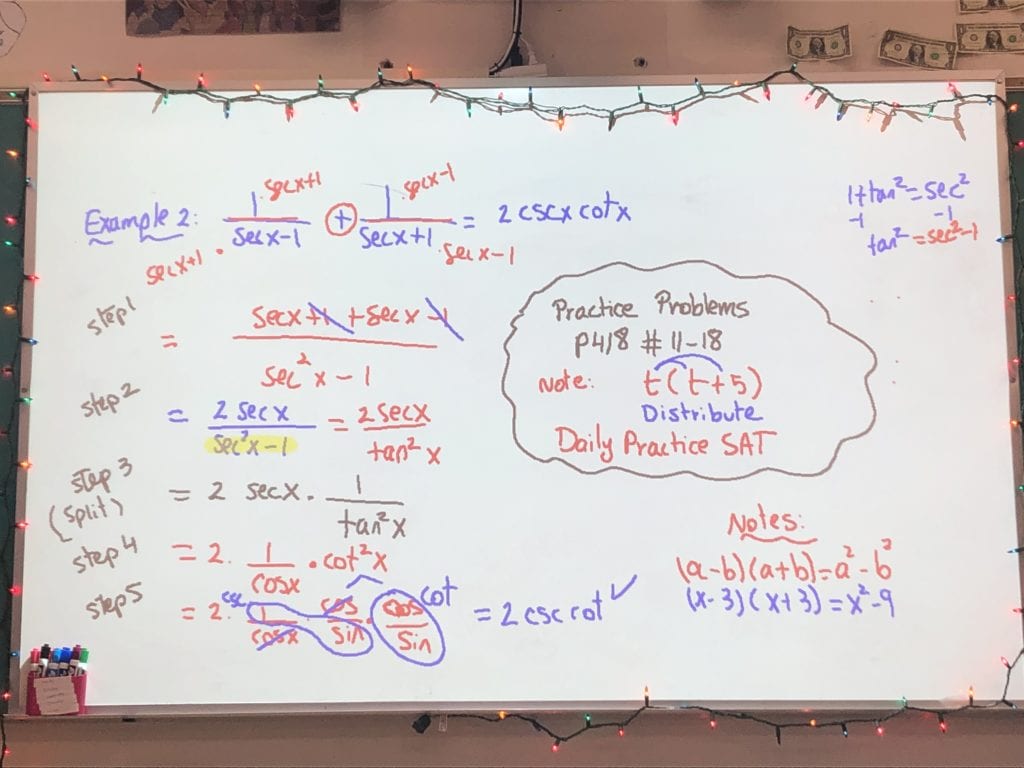 secx+1 secx-1
Example 2: 1/secx-1 + 1/secx+1 = 2 cscx cotx
secx+1 · · secx-1
1+tan²=sec²
-1 -1
tan²=sec²-1
step1
= secx+1 +secx-1 / sec²x-1
step2
= 2 secx / sec²x-1 = 2secx / tan²x
step3
(split)
= 2 secx · 1/tan²x
step4
= 2 · 1/cosx · cot²x
step5
= 2 · csc 1/cosx · cos/sin · cos/sin cot = 2 csc cot ✓
Practice Problems
P418 # 11-18
Note: t(t+5)
Distribute
Daily Practice SAT
Notes:
(a-b)(a+b)=a²-b²
(x-3)(x+3)=x²-9